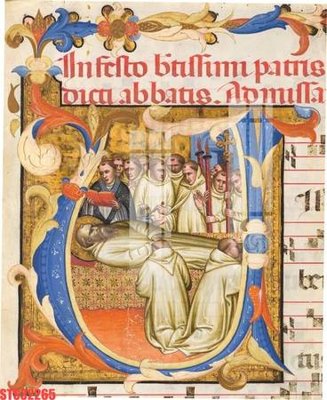 In festo btissimi patris
dicti abbatis. Ad missa